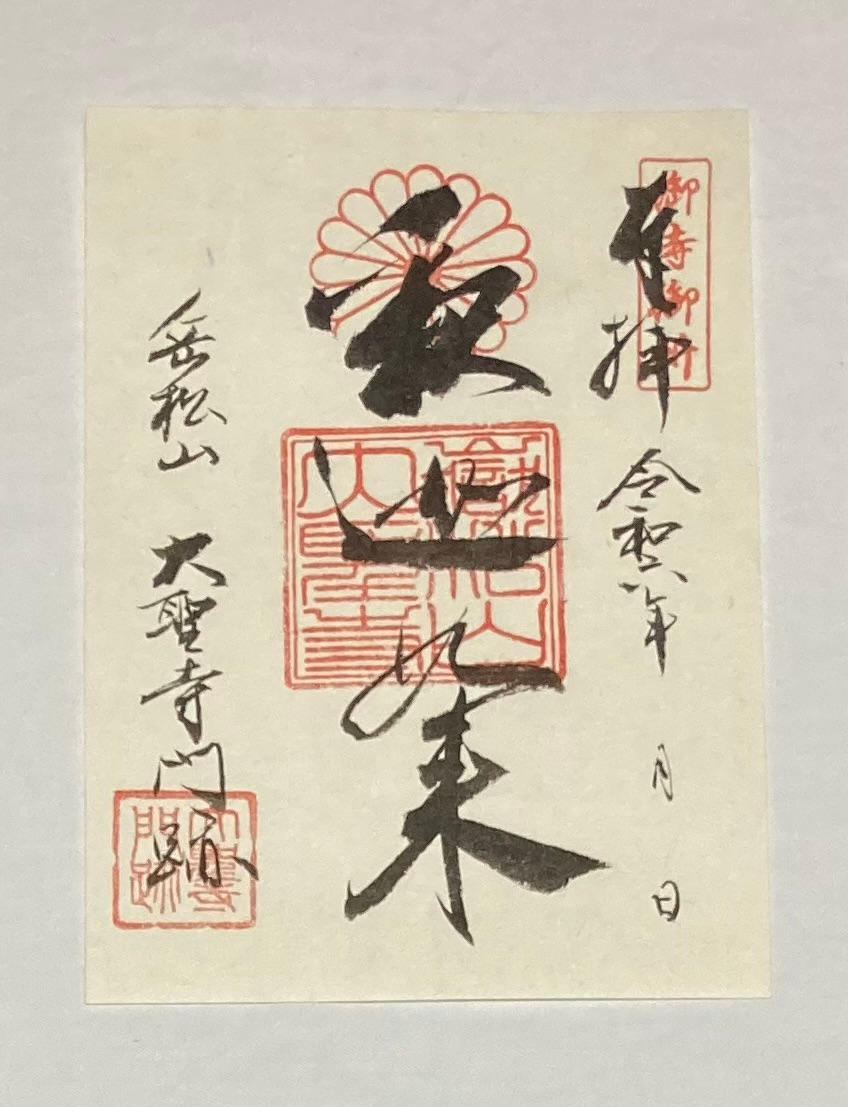 御寺御所
奉拝 令和六年 月 日
釈迦如来
嶽松山
大聖寺
岳松山 大聖寺門跡
大聖寺
門跡